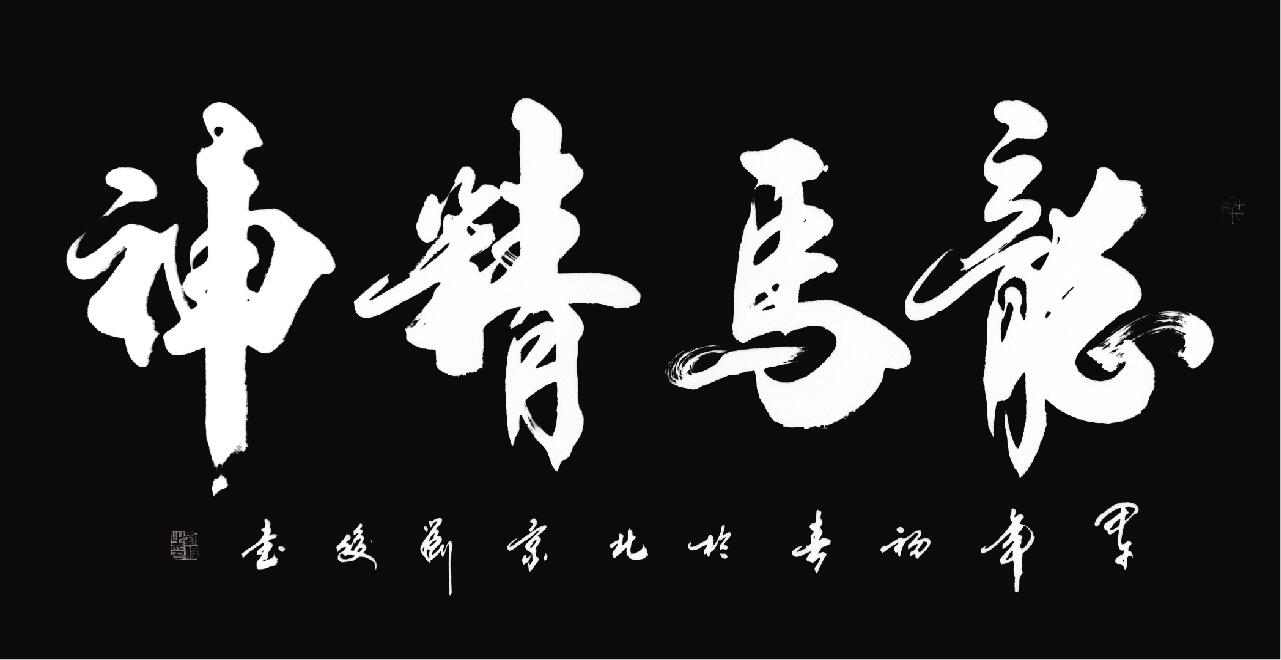 龍馬精神
甲午年初春於北京劉書